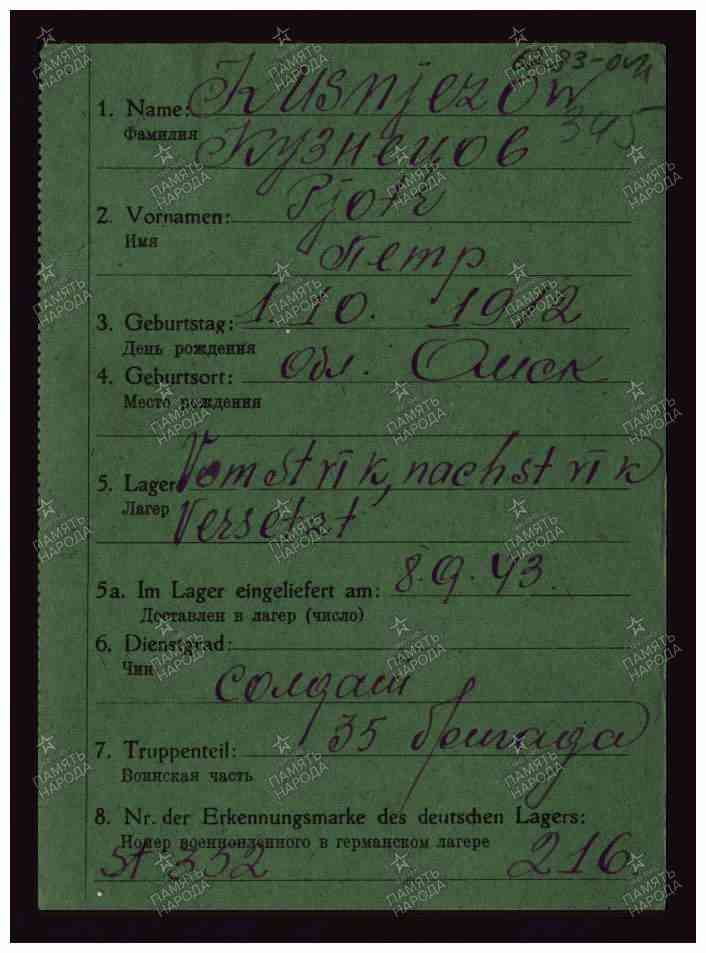 83-
1. Name: Kusnjezow
345
Фамилия
Кузнецов
2. Vornamen: Pjotr
Имя
Петр
3. Geburtstag: 1.10. 1912
День рождения
4. Geburtsort: Обл. Омск
Место рождения
5. Lager Vom St VI K, nach St VI K
Лагер Versetzt
5a. Im Lager eingeliefert am: 8.9.43.
Доставлен в лагер (число)
6. Dienstgrad:
Чин
солдат
7. Truppenteil: 35 бригада
Воинская часть
8. Nr. der Erkennungsmarke des deutschen Lagers:
Номер военнопленного в германском лагере
St 352 216
ПАМЯТЬ
НАРОДА